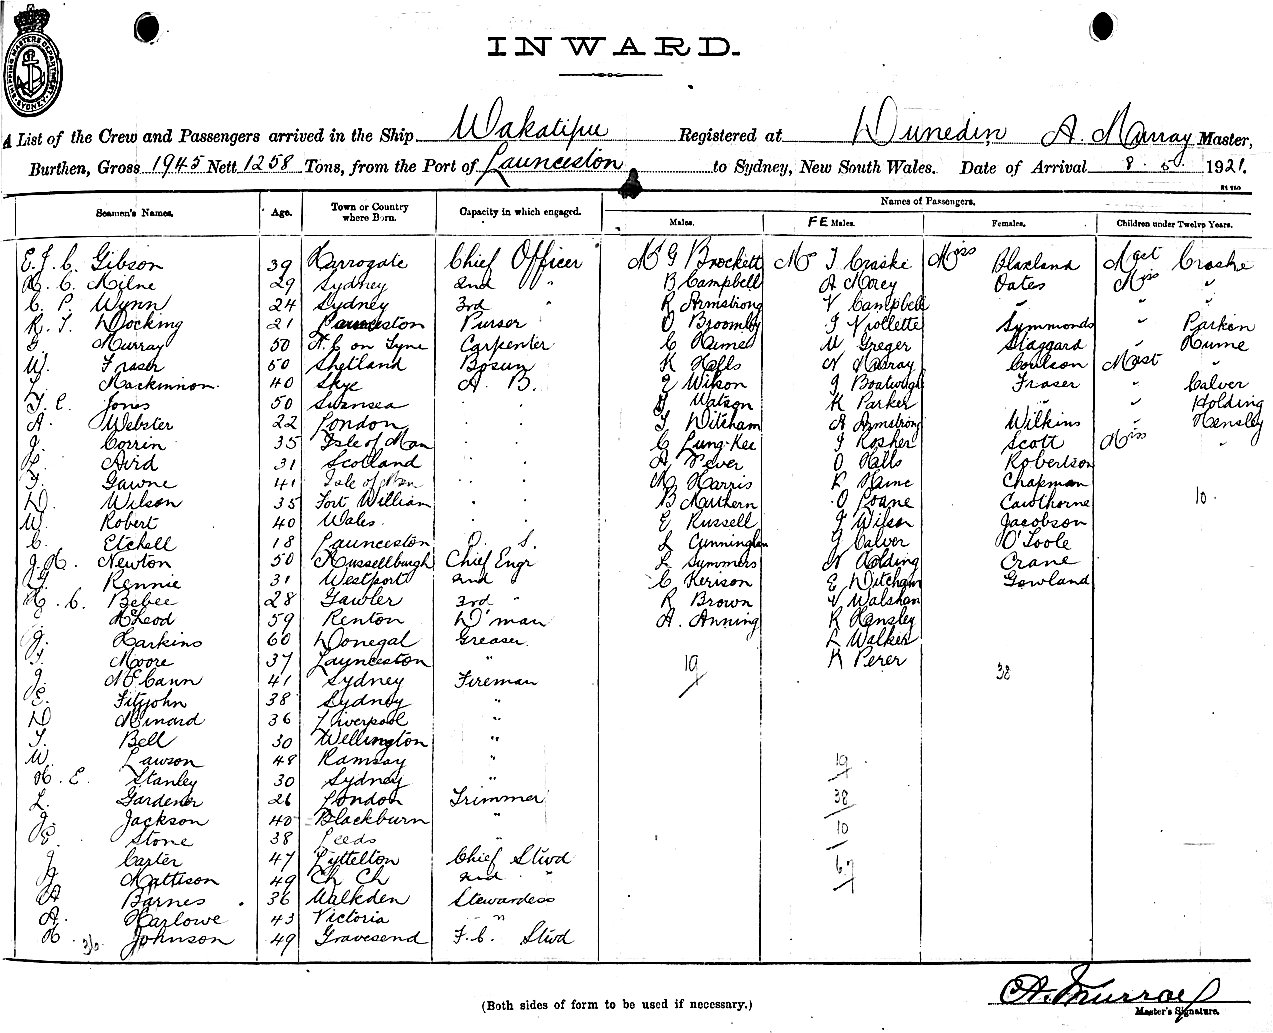 INWARD.
A List of the Crew and Passengers arrived in the Ship Wakatipu Registered at Dunedin, A. Murray Master,
Burthen, Gross 1945 Nett 1258 Tons, from the Port of Launceston to Sydney, New South Wales. Date of Arrival 8. 5. 1921.
Seamen's Names. Age. Town or Country where Born. Capacity in which engaged. Names of Passengers.
Males. FEMales. Females. Children under Twelve Years.
E. J. C. Gibson 39 Harrogate Chief Officer Mr G Brockett Mrs T Craike Miss Blaxland Mast Craske
H. C. Milne 29 Sydney 2nd " B Campbell A Morey Oates Miss "
C. P. Wynn 24 Sydney 3rd " R Armstrong V Campbell " "
R. T. Docking 21 Launceston Purser O Broomby J Viollette Symmonds " Parker
G Murray 50 N. C on Tyne Carpenter C Hume W Greger Staggard " Hume
W. Fraser 50 Shetland Bosun K Halls N Murray Coulson Mast "
T. Mackinnon. 40 Skye A. B. E Wilson J Boatwright Fraser " Calver
T. C. Jones 50 Swansea " " G Watson K Parker Holding
A. Webster 22 London " " T Witcham A Armstrong Wilkins " Hensley
J. Corrin 35 Isle of Man " " C Lung-Kee J Kosher Scott Miss "
Avid 31 Scotland " " A Pever O Halls Robertson
F. Gawne 41 Isle of Man " " M Harris L Hume Chapman
D. Wilson 35 Fort William " " B Mathern O Loane Cawthorne 10.
W. Robert 40 Wales. " " E Russell J Wilson Jacobson
C. Etchell 18 Launceston O. S. L Cunningham G Calver O'Toole
J. H. Newton 50 Mussellburgh Chief Engr L Summers N Holding Crane
G. Rennie 31 Westport 2nd " C Kerison E Witcham Gowland
H. C. Bebee 28 Gawler 3rd " R Brown V Walshan
McLeod 59 Renton D'man A. Anning K Hensley
J. Harkins 60 Donegal Greaser L Walker
T. Moore 37 Launceston " 19 K Perer 38
J. McCann 41 Sydney Fireman
E. Fitzjohn 38 Sydney "
D Minard 36 Liverpool "
T. Bell 30 Wellington "
W. Lawson 48 Ramsay " 19
H. E. Stanley 30 Sydney "
L. Gardener 26 London Trimmer 38
J. Jackson 40 Blackburn "
E. Stone 38 Leeds " 10
J Carter 47 Lyttelton Chief Stwd 67
J Mattison 49 Ch Ch 2nd "
A Barnes 36 Walkden Stewardess
A. Harlowe 43 Victoria "
H. Johnson 49 Gravesend F. C. Stwd
(Both sides of form to be used if necessary.)
A. Murray
Master's Signature.